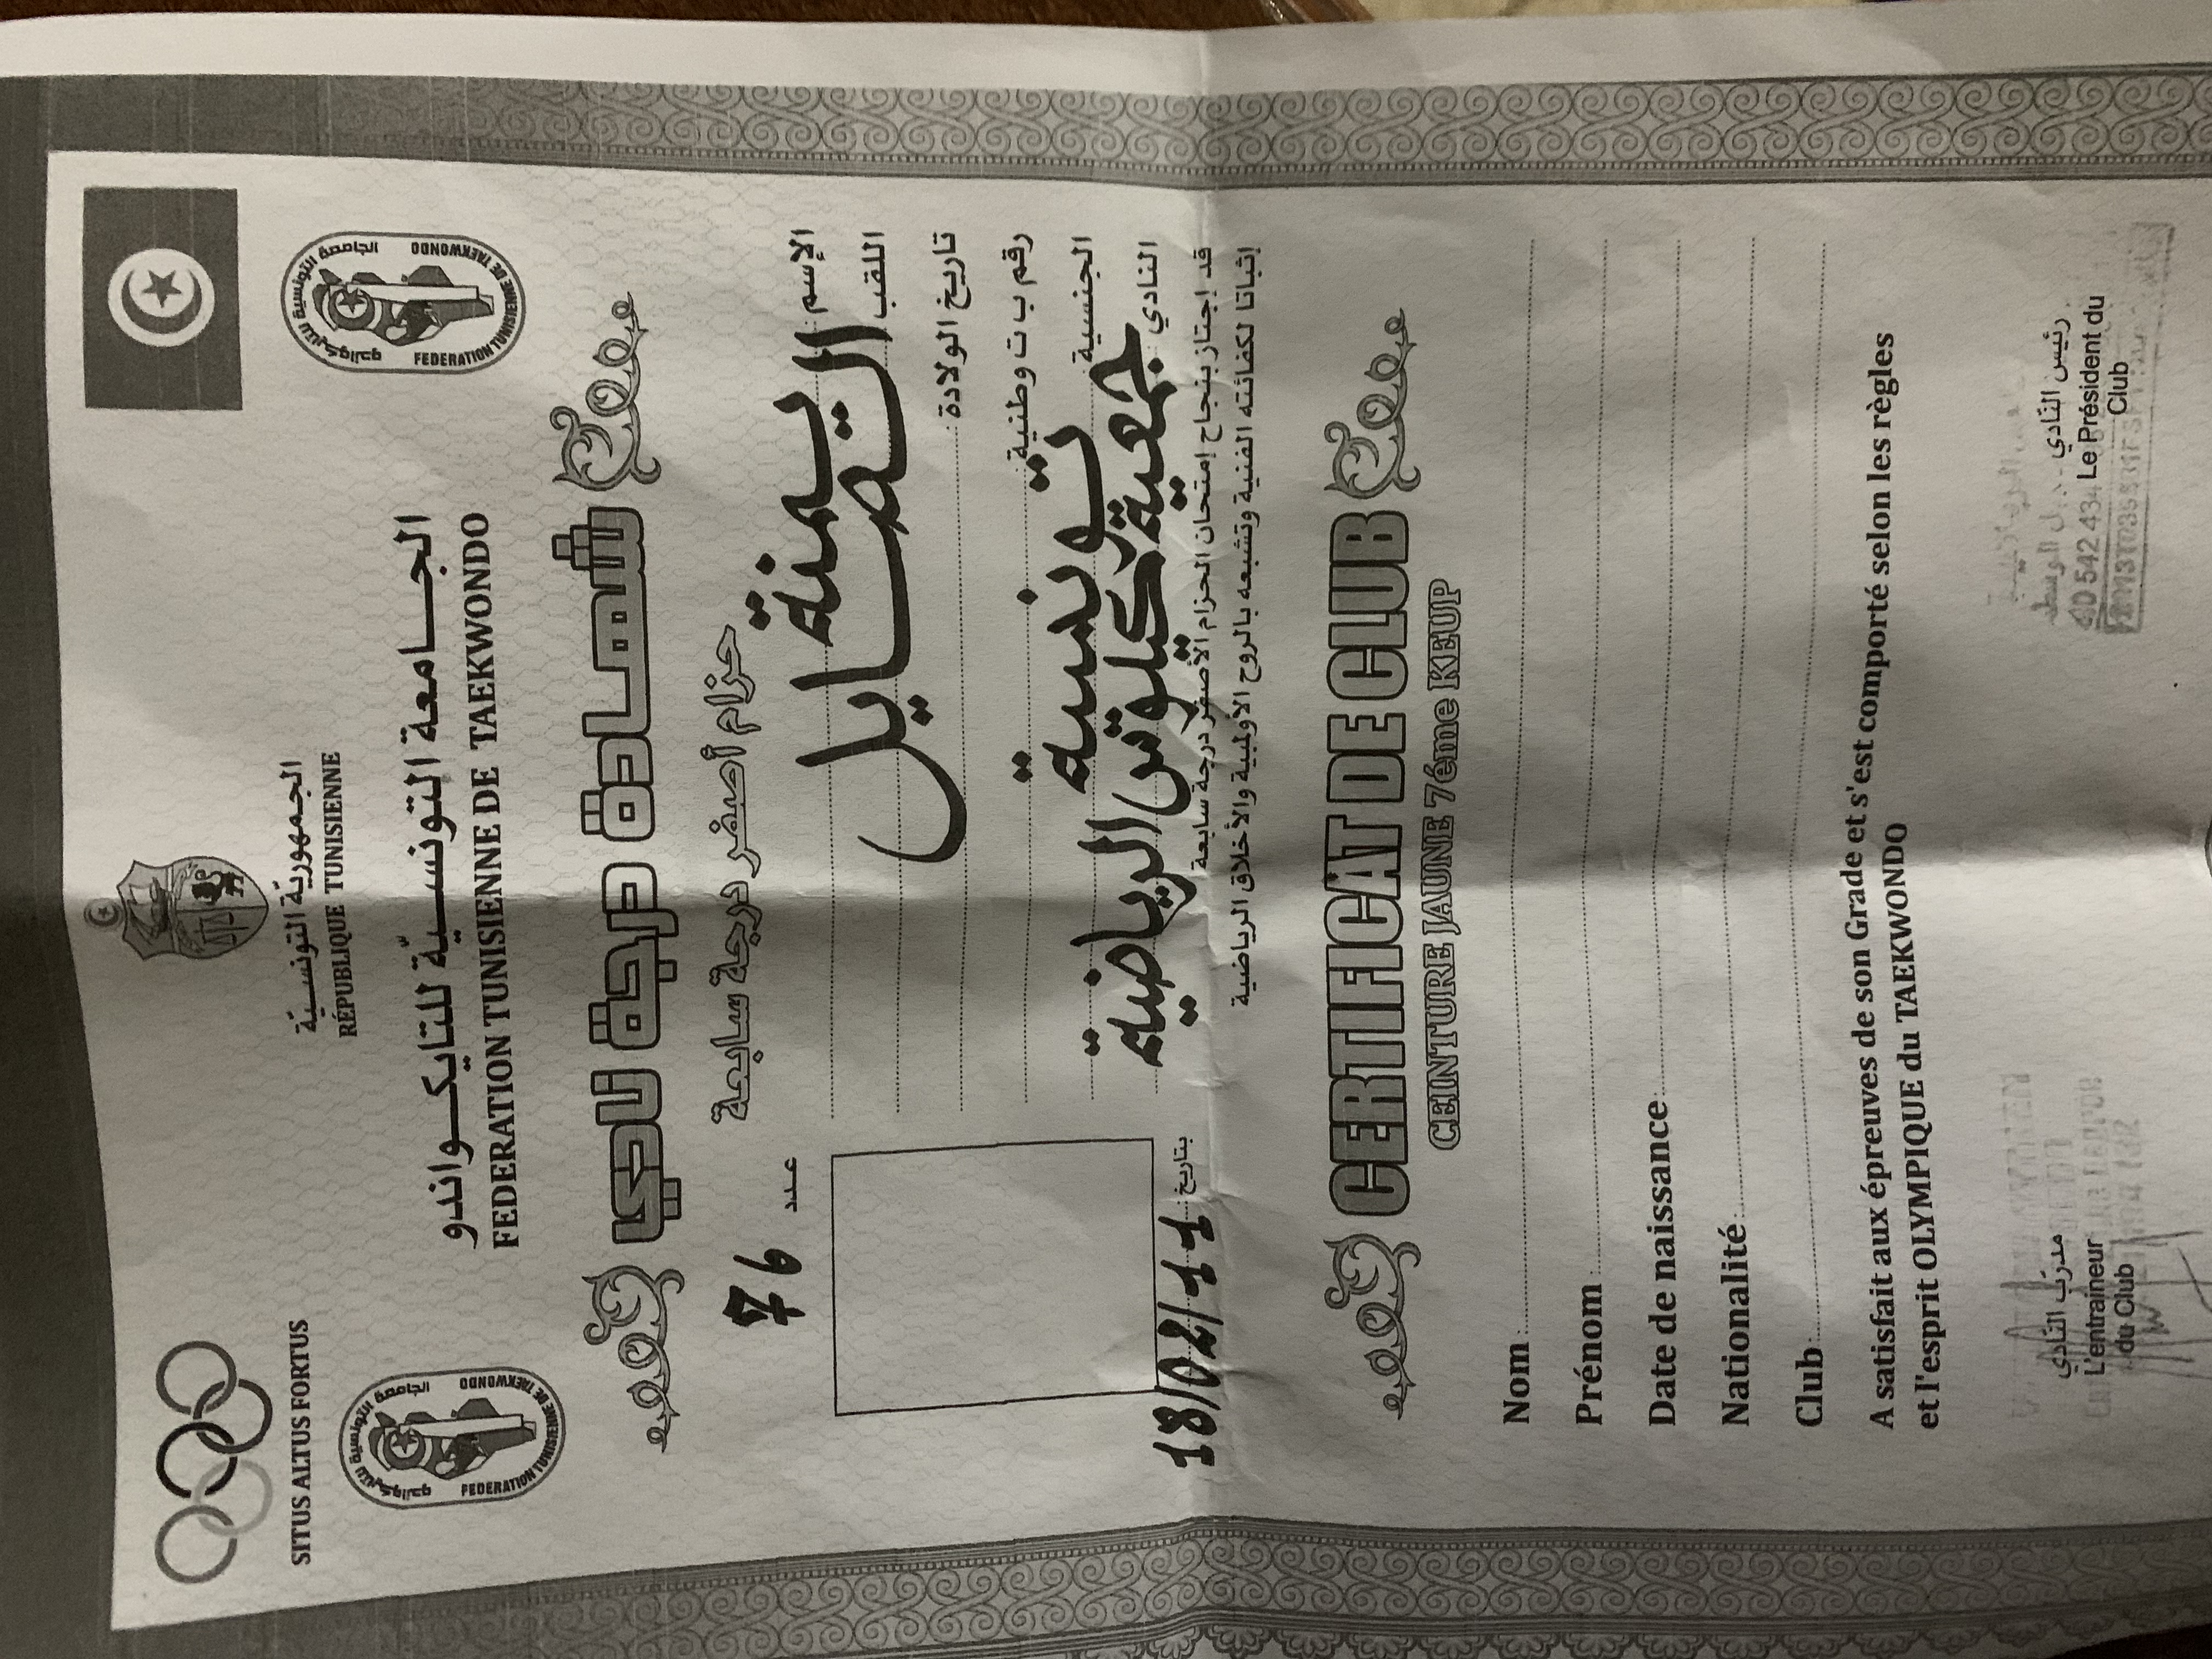 SITUS ALTUS FORTUS
الجمهورية التونسية
RÉPUBLIQUE TUNISIENNE
الجامعة التونسية للتايكواندو
FEDERATION TUNISIENNE DE TAEKWONDO
الجامعة التونسية للتايكواندو
FEDERATION TUNISIENNE DE TAEKWONDO
الجامعة التونسيّة للتايكواندو
FEDERATION TUNISIENNE DE TAEKWONDO
شهادة درجة نادي
حزام أصفر درجة سابعة
عدد 76
الإسم: يمنة
اللقب
تاريخ الولادة:
رقم ب ت وطنية:
الجنسية: تونسية
النادي: جمعية كيلوتس الرياضية
بتاريخ: 18/02/11
قد إجتاز بنجاح إمتحان الحزام الأصفر درجة سابعة
إثباتا لكفائته الفنية وتشبعه بالروح الأولمبية والأخلاق الرياضية
CERTIFICAT DE CLUB
CEINTURE JAUNE 7éme KEUP
Nom:
Prénom:
Date de naissance:
Nationalité:
Club:
A satisfait aux épreuves de son Grade et s'est comporté selon les règles
et l'esprit OLYMPIQUE du TAEKWONDO
مدرب النادي
L'entraineur
du Club
رئيس النادي
Le Président du
Club
40 542 434